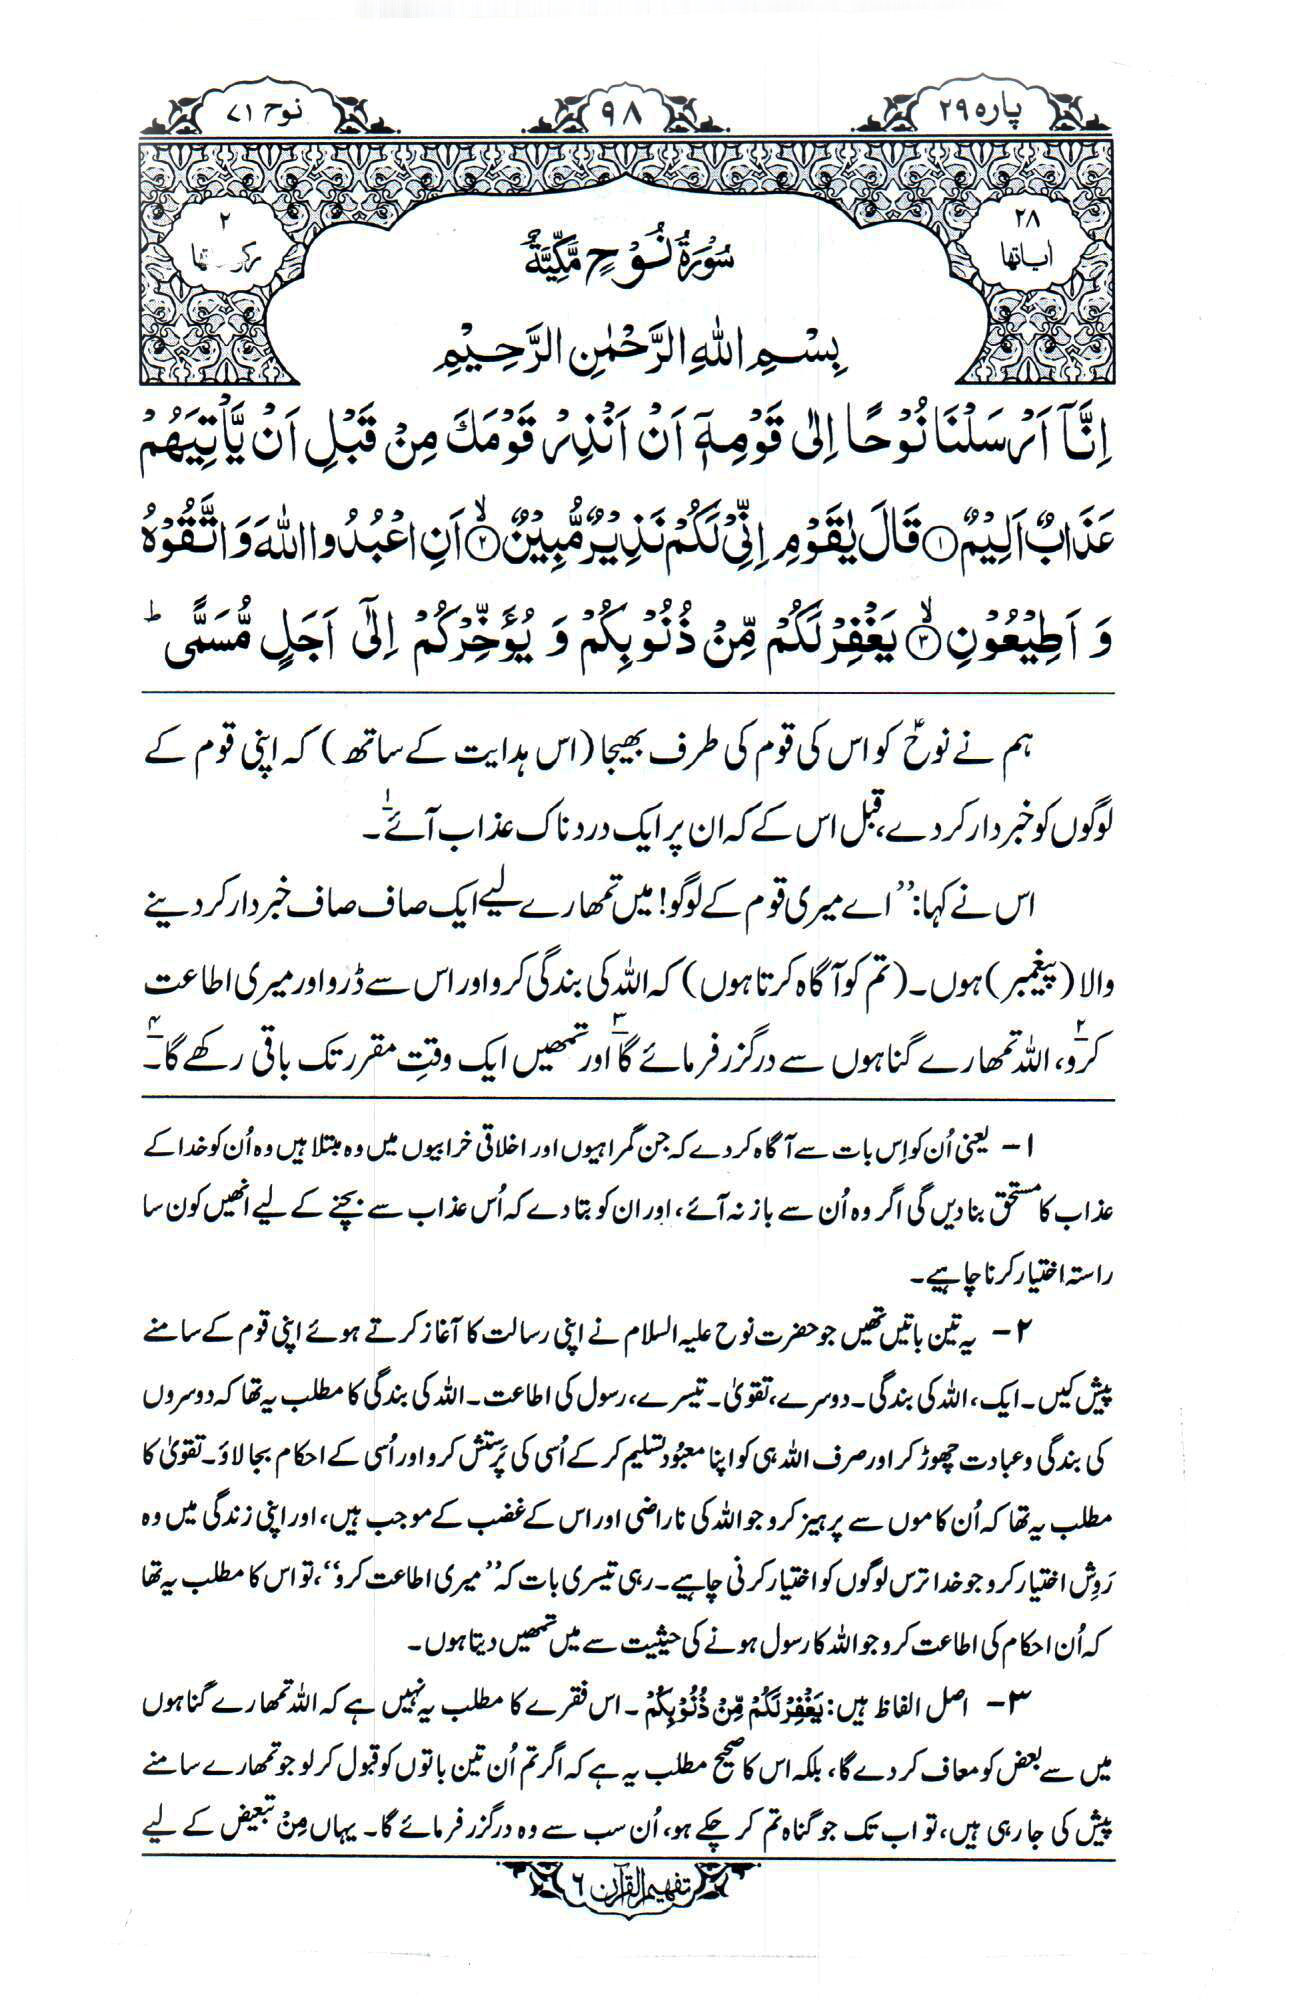 پارہ ۲۹
۹۸
نوح ۷۱
۲۸
اٰیاتها
سُوْرَةُ نُوْحٍ مَّكِّيَّةٌ
۲
بِسْمِ اللهِ الرَّحْمٰنِ الرَّحِيْمِ
اِنَّآ اَرْسَلْنَا نُوْحًا اِلٰى قَوْمِهٖٓ اَنْ اَنْذِرْ قَوْمَكَ مِنْ قَبْلِ اَنْ يَّاْتِيَهُمْ
عَذَابٌ اَلِيْمٌ ۝۱ قَالَ يٰقَوْمِ اِنِّيْ لَكُمْ نَذِيْرٌ مُّبِيْنٌ ۝۲ۙ اَنِ اعْبُدُوا اللهَ وَاتَّقُوْهُ
وَ اَطِيْعُوْنِ ۝۳ۙ يَغْفِرْ لَكُمْ مِّنْ ذُنُوْبِكُمْ وَ يُؤَخِّرْكُمْ اِلٰٓى اَجَلٍ مُّسَمًّى ؕ
ہم نے نوحؑ کو اس کی قوم کی طرف بھیجا (اس ہدایت کے ساتھ) کہ اپنی قوم کے
لوگوں کو خبردار کردے، قبل اس کے کہ ان پر ایک دردناک عذاب آئے۱۔
اس نے کہا: ’’اے میری قوم کے لوگو! میں تمھارے لیے ایک صاف صاف خبردار کردینے
والا (پیغمبر) ہوں۔ (تم کو آگاہ کرتا ہوں) کہ اللہ کی بندگی کرو اور اس سے ڈرو اور میری اطاعت
کرو۲، اللہ تمھارے گناہوں سے درگزر فرمائے گا۳ اور تمھیں ایک وقتِ مقرر تک باقی رکھے گا۴۔
۱- یعنی اُن کو اِس بات سے آگاہ کردے کہ جن گمراہیوں اور اخلاقی خرابیوں میں وہ مبتلا ہیں وہ اُن کو خدا کے
عذاب کا مستحق بنا دیں گی اگر وہ اُن سے باز نہ آئے، اور ان کو بتا دے کہ اُس عذاب سے بچنے کے لیے انھیں کون سا
راستہ اختیار کرنا چاہیے۔
۲- یہ تین باتیں تھیں جو حضرت نوح علیہ السلام نے اپنی رسالت کا آغاز کرتے ہوئے اپنی قوم کے سامنے
پیش کیں۔ ایک، اللہ کی بندگی۔ دوسرے، تقویٰ۔ تیسرے، رسول کی اطاعت۔ اللہ کی بندگی کا مطلب یہ تھا کہ دوسروں
کی بندگی و عبادت چھوڑ کر اور صرف اللہ ہی کو اپنا معبُود تسلیم کر کے اُسی کی پَرستش کرو اور اُسی کے احکام بجا لاؤ۔ تقویٰ کا
مطلب یہ تھا کہ اُن کاموں سے پرہیز کرو جو اللہ کی ناراضی اور اس کے غضب کے موجب ہیں، اور اپنی زندگی میں وہ
رَوِش اختیار کرو جو خدا ترس لوگوں کو اختیار کرنی چاہیے۔ رہی تیسری بات کہ ’’میری اطاعت کرو‘‘، تو اس کا مطلب یہ تھا
کہ اُن احکام کی اطاعت کرو جو اللہ کا رسول ہونے کی حیثیت سے میں تمھیں دیتا ہوں۔
۳- اصل الفاظ ہیں: يَغْفِرْ لَكُمْ مِّنْ ذُنُوْبِكُمْ۔ اس فقرے کا مطلب یہ نہیں ہے کہ اللہ تمھارے گناہوں
میں سے بعض کو معاف کردے گا، بلکہ اس کا صحیح مطلب یہ ہے کہ اگر تم اُن تین باتوں کو قبول کرلو جو تمھارے سامنے
پیش کی جا رہی ہیں، تو اب تک جو گناہ تم کر چکے ہو، اُن سب سے وہ درگزر فرمائے گا۔ یہاں مِنْ تبعیض کے لیے
تفہیم القرآن ۶